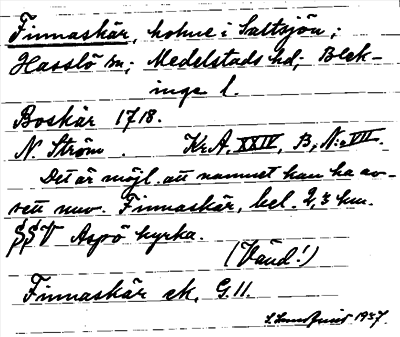 Finnaskär, holme i Saltsjön;
Hasslö sn; Medelstads hd; Blek-
inge l.
Boskär 1718.
N. Ström. Kr.A. XXIV, B, N:o VII.
Det är möjl. att namnet kan ha av-
sett nuv. Finnaskär, bel. 2,3 km.
SSV Aspö kyrka.
(Vänd!)
Finnaskär ek. G.11.
S. Lundquist 1937.